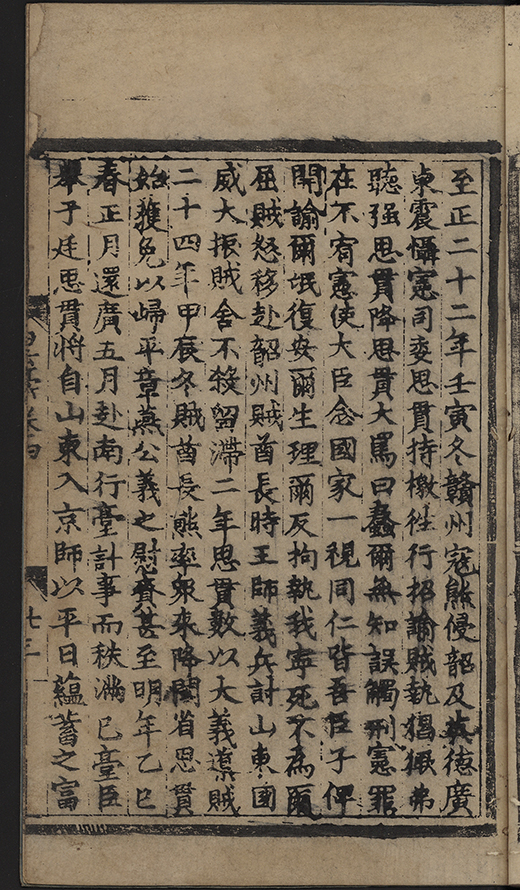 至正二十二年壬寅冬贛州寇熊侵韶及英德廣
東震懾憲司委思貫持檄徃行招諭賊執猖獗弗
聽强思貫降思貫大罵曰蠢爾無知誤觸刑憲罪
在不宥憲使大臣念國家一視同仁皆吾臣子俾
開諭爾氓復安爾生理爾反拘執我寧死不為爾
屈賊怒移赴韶州賊酋長時王師義兵討山東國
威大振賊舍不殺留滯二年思貫數以大義凜賊
二十四年甲辰冬賊酋長熊率眾來降閩省思貫
始獲免以歸平章燕公義之慰賚甚至明年乙巳
春正月還廣五月赴南行臺計事而秩滿已臺臣
舉子廷思貫將自山東入京師以平日蘊蓄之富
卷四
七三